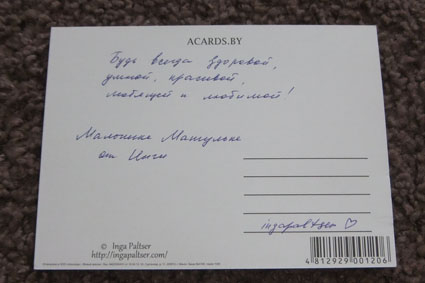 ACARDS.BY
Будь всегда здоровой,
умной, красивой,
любящей и любимой!
от Инги
ingapaltser ♡
© Inga Paltser
http://ingapaltser.com/
4 812929 001206